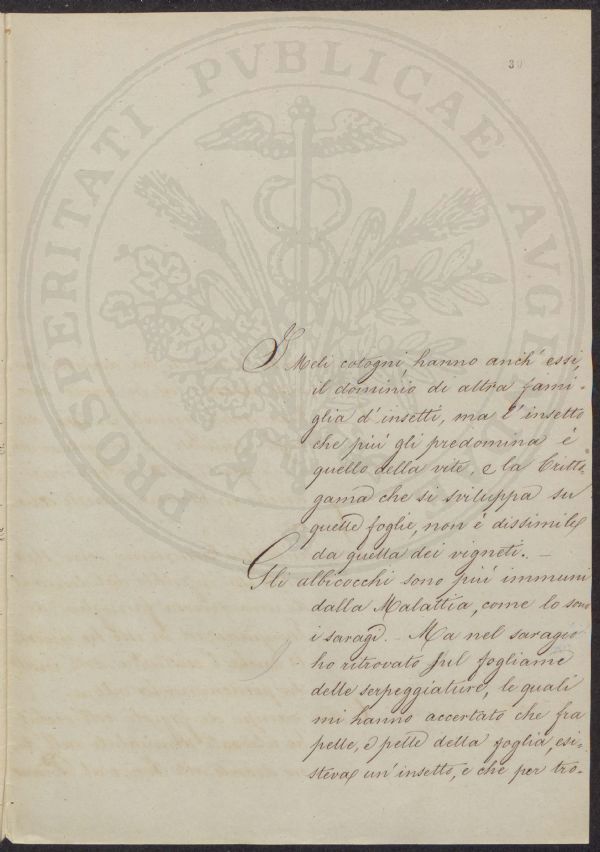 30
PROSPERITATI PVBLICAE AVGE
I Meli cotogni, hanno anch' essi,
il dominio di altra fami-
glia d'insetti, ma l'insetto
che piú gli predomina é
quello della vite, e la Critto-
gama che si sviluppa su
quelle foglie, non é dissimile
da quella dei vigneti. _
Gli albicocchi sono piú immuni
dalla Malattia, come lo sono
i saragi. _ Ma nel saragio
ho ritrovato sul fogliame
delle serpeggiature, le quali
mi hanno accertato che fra
pelle, e pelle della foglia, esi-
steva un' insetto, e che per tro-